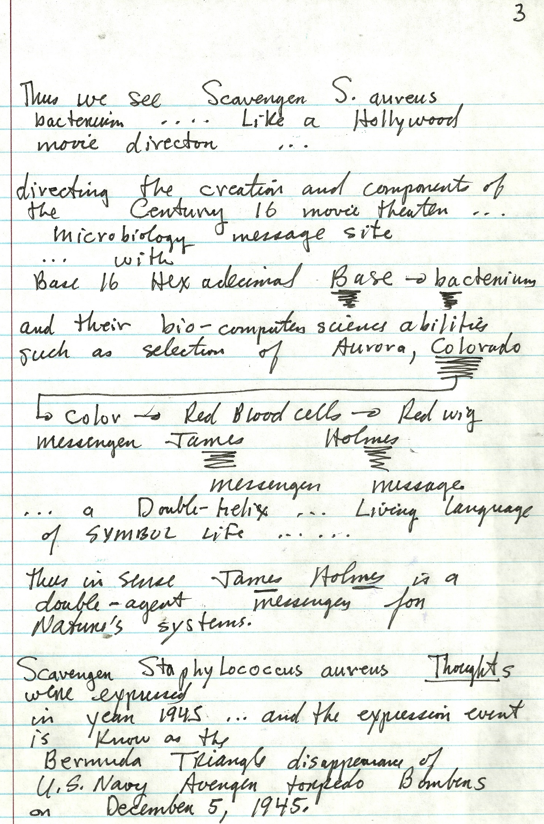 3
Thus we see Scavengen S. aureus
bacterium .... Like a Hollywood
movie directon ...
directing the creation and components of
the Century 16 movie theaten ...
Microbiology message site
... with
Base 16 Hexadecimal Base → bacterium
and their bio-computen science abilities
such as selection of Aurora, Colorado
→ Color → Red Blood cells → Red wig
messengen James Holmes
messengen message
... a Double-helix ... Living language
of SYMBOL LiFe ......
Thus in sense James Holmes is a
double-agent messengen fon
Nature's systems.
Scavengen Staphylococcus aureus Thoughts
were expressed
in year 1945 ... and the expression event
is Know as the
Bermuda Triangle disappearance of
U.S. Navy Avengen torpedo Bombens
on December 5, 1945.